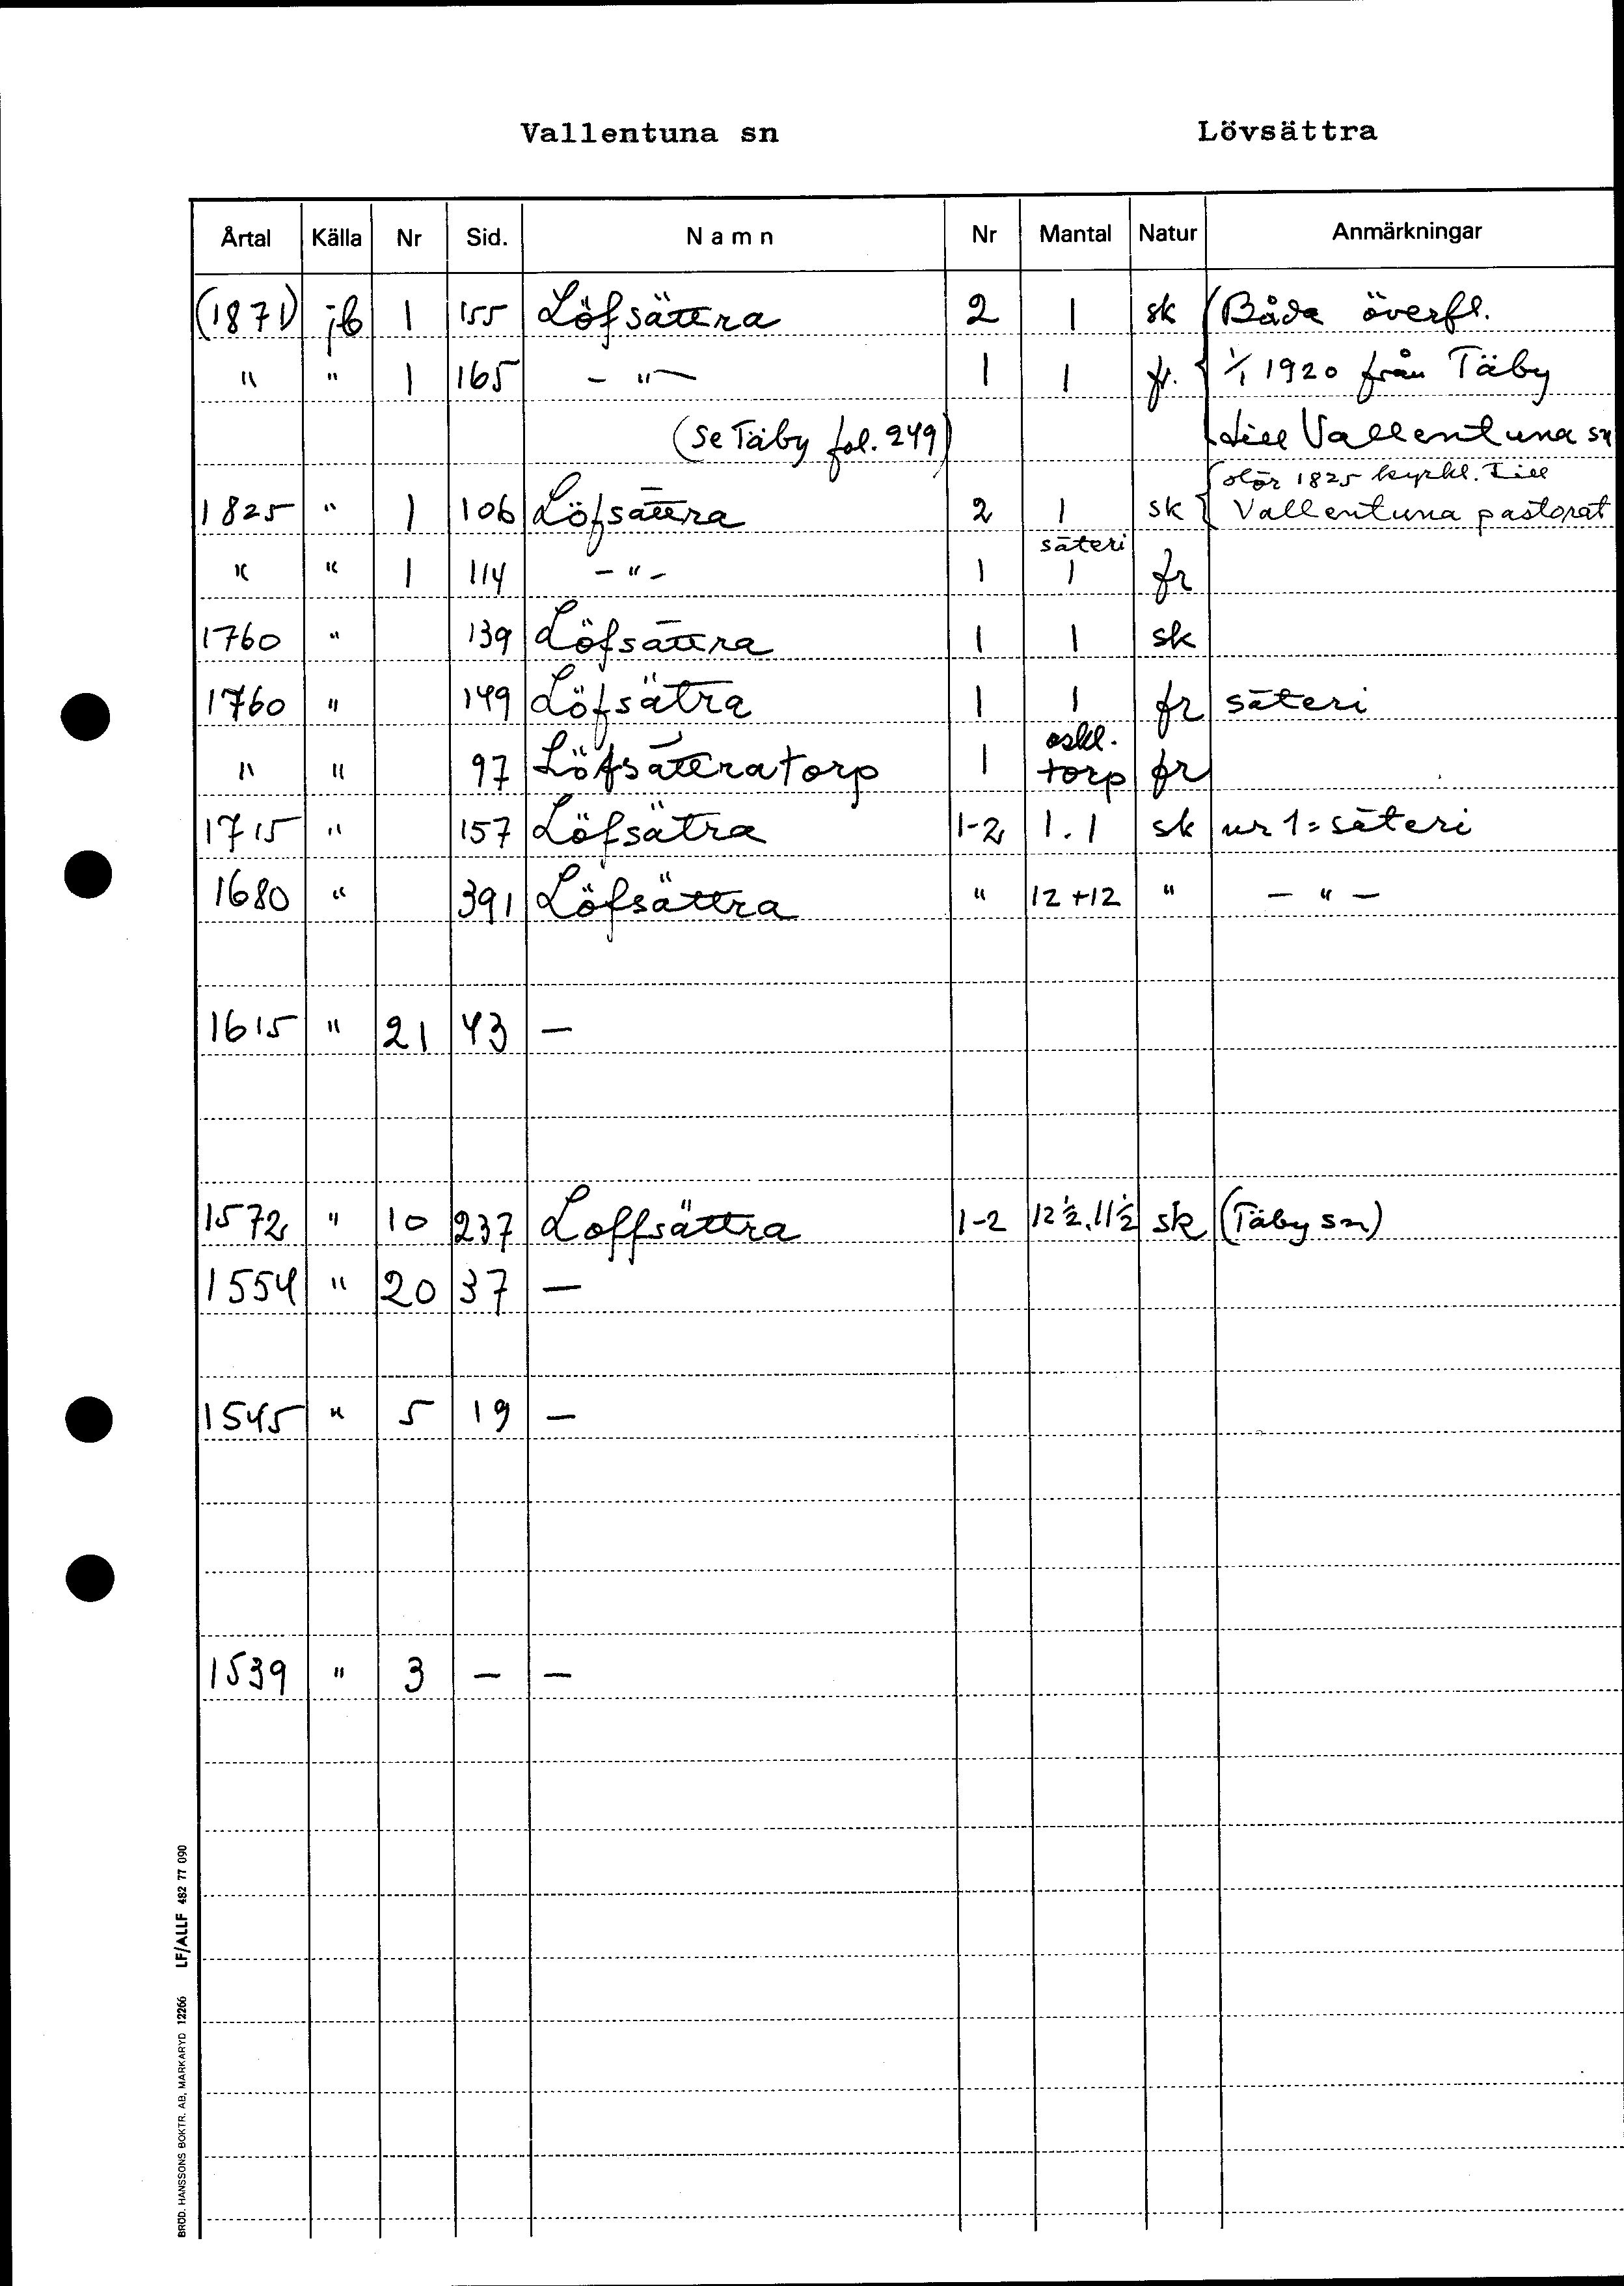 Vallentuna sn Lövsättra
Årtal Källa Nr Sid. Namn Nr Mantal Natur Anmärkningar
(1871) jb 1 155 Löfsättra 2 1 sk Båda överfl.
" " 1 165 - " - 1 1 fr. 1/1 1920 från Täby
(se Täby fol. 249) till Vallentuna sn
1825 kyrkl. till
1825 " 1 106 Löfsättra 2 1 sk Vallentuna pastorat
säteri
" " 1 114 - " - 1 1 fr
1760 " 139 Löfsättra 1 1 sk
1760 " 149 Löfsätra 1 1 fr säteri
oskl.
" " 97 Löfsättratorp 1 torp fr
1715 " 157 Löfsätra 1-2 1.1 sk nr 1 = säteri
1680 " 391 Löfsättra " 12+12 " - " -
1615 " 21 43 —
1572 " 10 237 Loffsättra 1-2 12 1/2, 11 1/2 sk (Täby sn)
1554 " 20 37 —
1545 " 5 19 —
1539 " 3 — —
BRÖD. HANSSONS BOKTR. AB, MARKARYD 12266 LF/ALLF 482 77 090